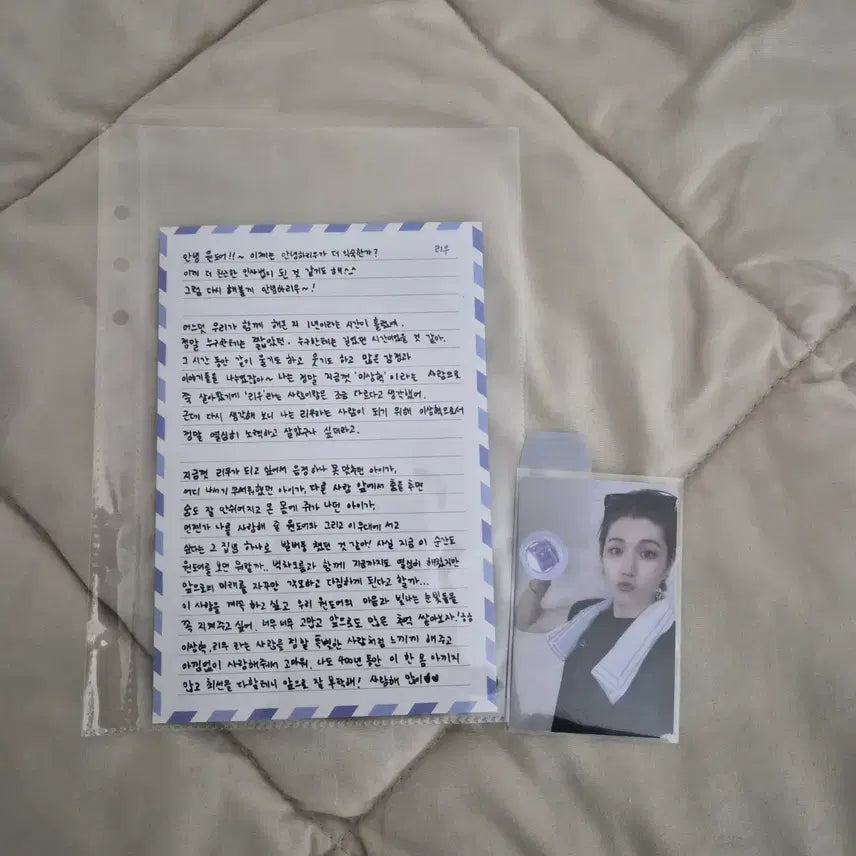 리우
안녕 원도어!!~ 이제는 안녕하리우가 더 익숙한가?
이게 더 단순한 인사법이 된 것 같기도 해^^
그럼 다시 해볼게 안녕하리우~!
어느덧 우리가 함께 해온 지 1년이라는 시간이 흘렀어.
정말 누구한테는 짧았던. 누구한테는 길었던 시간이었을 것 같아.
그 시간 동안 같이 울기도 하고 웃기도 하고 많은 감정과
이야기들을 나누었잖아~ 나는 정말 지금껏 '이상혁'이라는 사람으로
쭉 살아왔기에 '리우'라는 사람이랑은 조금 다르다고 생각했어.
근데 다시 생각해 보니 나는 리우라는 사람이 되기 위해 이상혁으로서
정말 열심히 노력하고 살았구나 싶더라고.
지금껏 리우가 되고 싶어서 음정 하나 못 맞추던 아이가,
어디 나서기 무서워했던 아이가, 다른 사람 앞에서 춤을 추면
숨도 잘 안쉬어지고 온 몸에 쥐가 나던 아이가,
언젠가 나를 사랑해 줄 원도어와 그리고 이 무대에 서고
싶다는 그 집념 하나로 발버둥 쳤던 것 같아! 사실 지금 이 순간도
원도어를 보면 뭐랄까.. 벅차오름과 함께 지금까지도 열심히 해왔지만
앞으로의 미래를 자꾸만 각오하고 다짐하게 된다고 할까...
이 사랑을 계속 하고 싶고 우리 원도어의 마음과 빛나는 눈빛들을
꼭 지켜주고 싶어. 너무 너무 고맙고 앞으로도 많은 추억 쌓아보자!ㅎㅎ
이상혁, 리우 라는 사람을 정말 특별한 사람처럼 느끼게 해주고
아낌없이 사랑해줘서 고마워. 나도 400년 동안 이 한 몸 아끼지
않고 최선을 다할테니 앞으로 잘 부탁해! 사랑해 많이♥♥